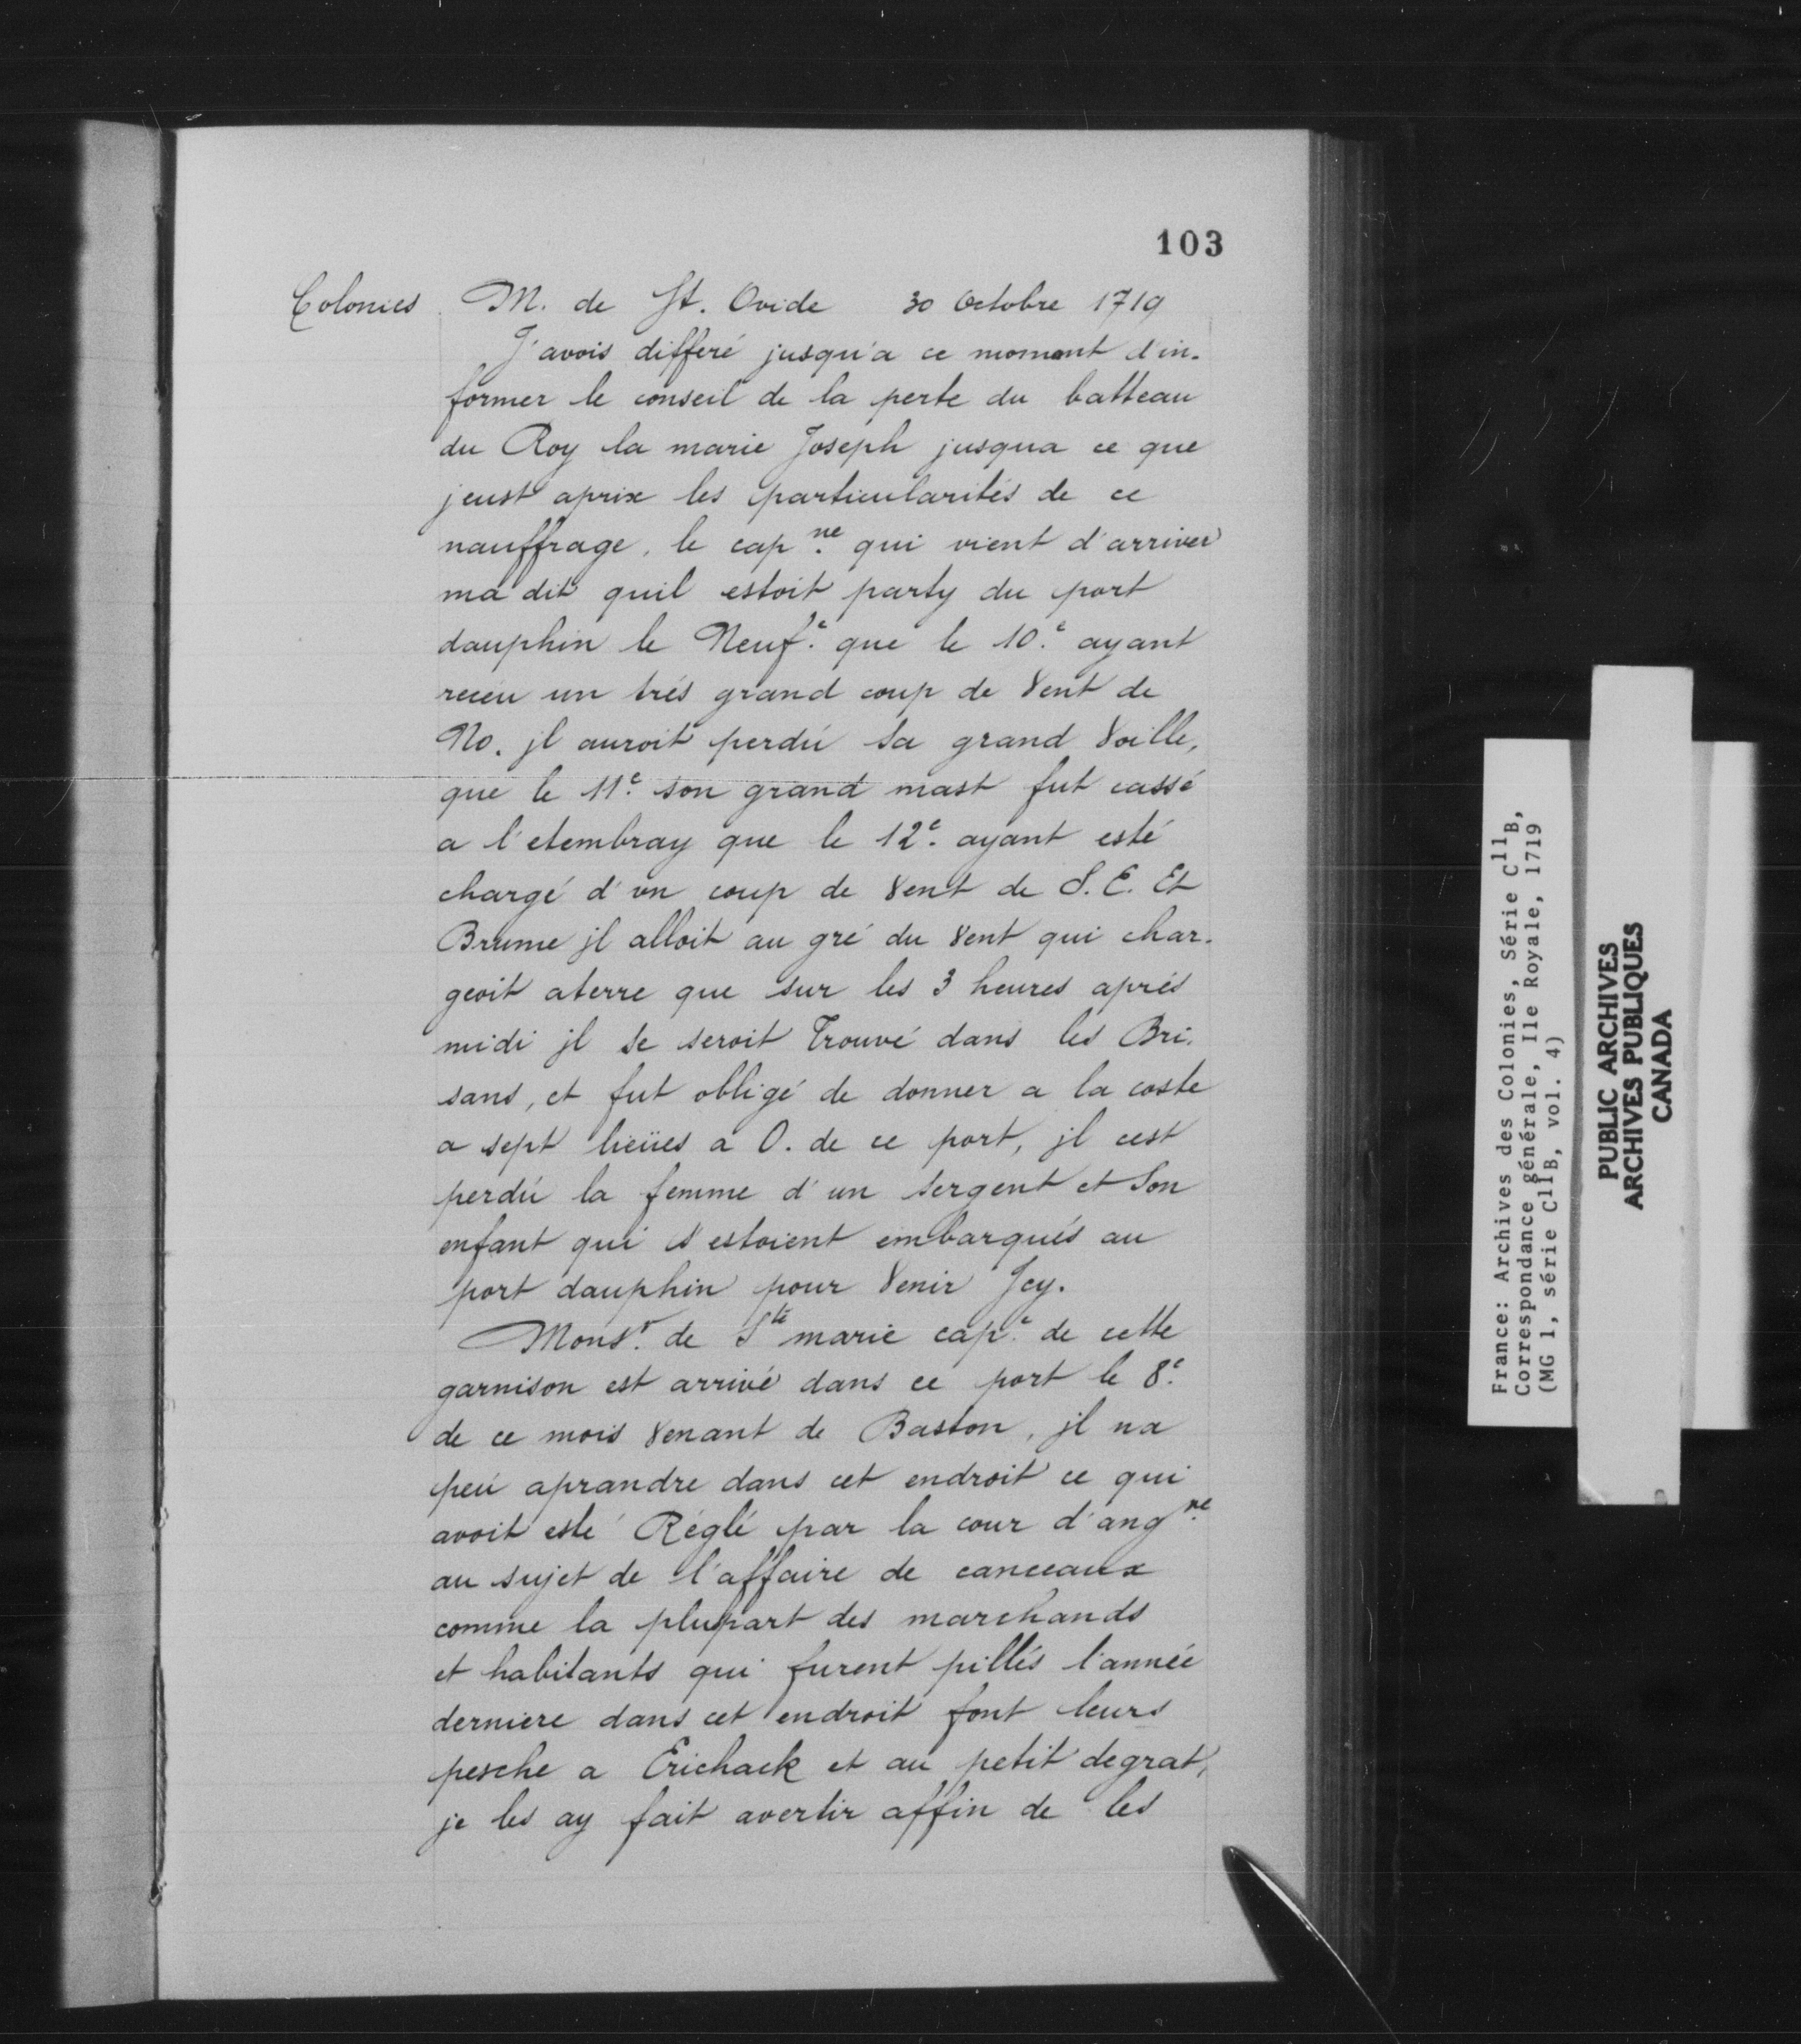 103
Colonies M. de St. Ovide 30 Octobre 1719
J'avois differé jusqu'a ce momant d'in-
former le conseil de la perte du batteau
du Roy la marie Joseph jusqua ce que
jeust aprix les particularités de ce
nauffrage, le cap.ne qui vient d'arriver
ma dit quil estoit party du port
dauphin le Neuf.e que le 10.e ayant
receu un trés grand coup de Vent de
No. jl auroit perdu sa grand Voille,
que le 11.e son grand mast fut cassé
a l'etembray que le 12.e ayant esté
chargé d'vn coup de Vent de S. E. Et
Brume jl alloit au gré du Vent qui char-
geoit aterre que sur les 3 heures aprés
midi jl se seroit Trouvé dans les Bri-
sans, et fut obligé de donner a la coste
a sept lieües a O. de ce port, jl cest
perdu la femme d'un sergent et son
enfant qui s'estoient embarqués au
port dauphin pour Venir Jcy.
Mons.r de Ste marie cap.e de cette
garnison est arrivé dans ce port le 8.e
de ce mois Venant de Baston, jl na
peu aprandre dans cet endroit ce qui
avoit esté Réglé par la cour d'ang.re
au sujet de l'affaire de canceaux
comme la plupart des marchands
et habitants qui furent pillés l'année
derniere dans cet endroit font leurs
pesche a Erichack et au petit degrat,
je les ay fait avertir affin de les
France: Archives des Colonies, Série C11B,
Correspondance générale, Ile Royale, 1719
(MG 1, série C11B, vol. 4)
PUBLIC ARCHIVES
ARCHIVES PUBLIQUES
CANADA